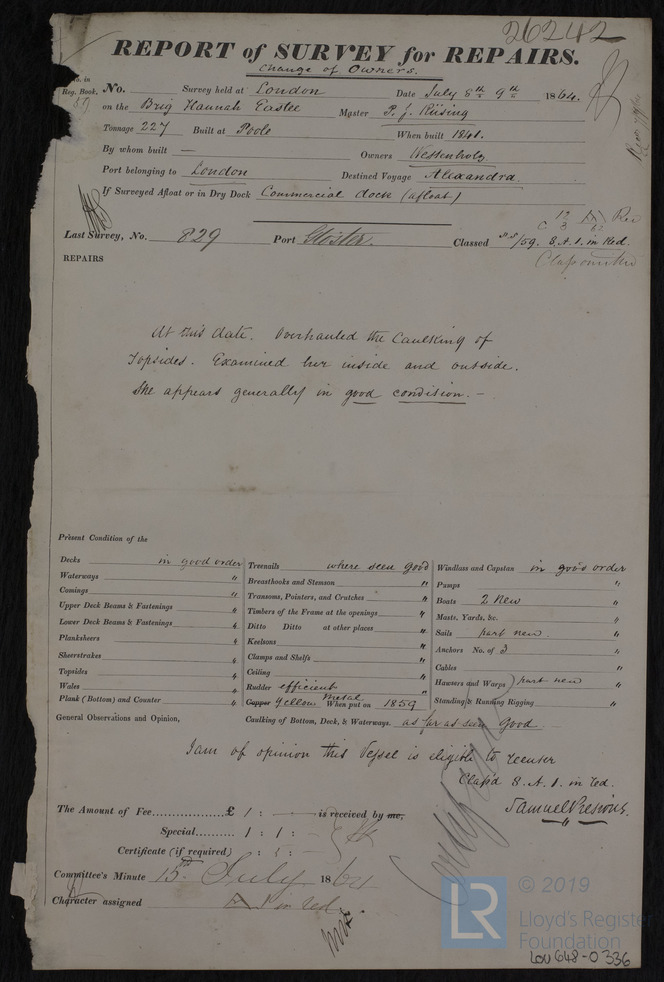 26242
REPORT of SURVEY for REPAIRS.
Change of Owners.
No. in Reg. Book.
No. Survey held at London Date July 8th 9th 1864.
on the Brig Hannah Eastee Master P. J. Riising
Tonnage 227 Built at Poole When built 1841.
By whom built — Owners Westenholz
Port belonging to London Destined Voyage Alexandra
If Surveyed Afloat or in Dry Dock Commercial dock (afloat)
Last Survey, No. 829 Port Glo'ster Classed /59. 8. A. 1. in Red.
REPAIRS
At this date. Overhauled the Caulking of
Topsides. Examined her inside and outside.
She appears generally in good condition. —
Present Condition of the
Decks in good order Treenails where seen good Windlass and Capstan in good order
Waterways " Breasthooks and Stemson " Pumps "
Comings " Transoms, Pointers, and Crutches " Boats 2 New "
Upper Deck Beams & Fastenings " Timbers of the Frame at the openings " Masts. Yards, &c. "
Lower Deck Beams & Fastenings " Ditto Ditto at other places " Sails part new. "
Planksheers " Keelsons " Anchors No. of 3 "
Sheerstrakes " Clamps and Shelfs " Cables "
Topsides " Ceiling " Hawsers and Warps part new "
Wales " Rudder efficient " Standing & Running Rigging "
Plank (Bottom) and Counter " Copper Yellow Metal When put on 1859
General Observations and Opinion, Caulking of Bottom, Deck, & Waterways. as far as seen Good.
I am of opinion this Vessel is eligible to
Class'd 8. A. 1. in red.
Samuel Presious.
The Amount of Fee £ 1 : — is received by me,
Special 1 : 1 : —
Certificate (if required) : :
Committee's Minute 15th July 1864
Character assigned 1 in red.
© 2019
LR Lloyd's Register
Foundation
LOU648-0336